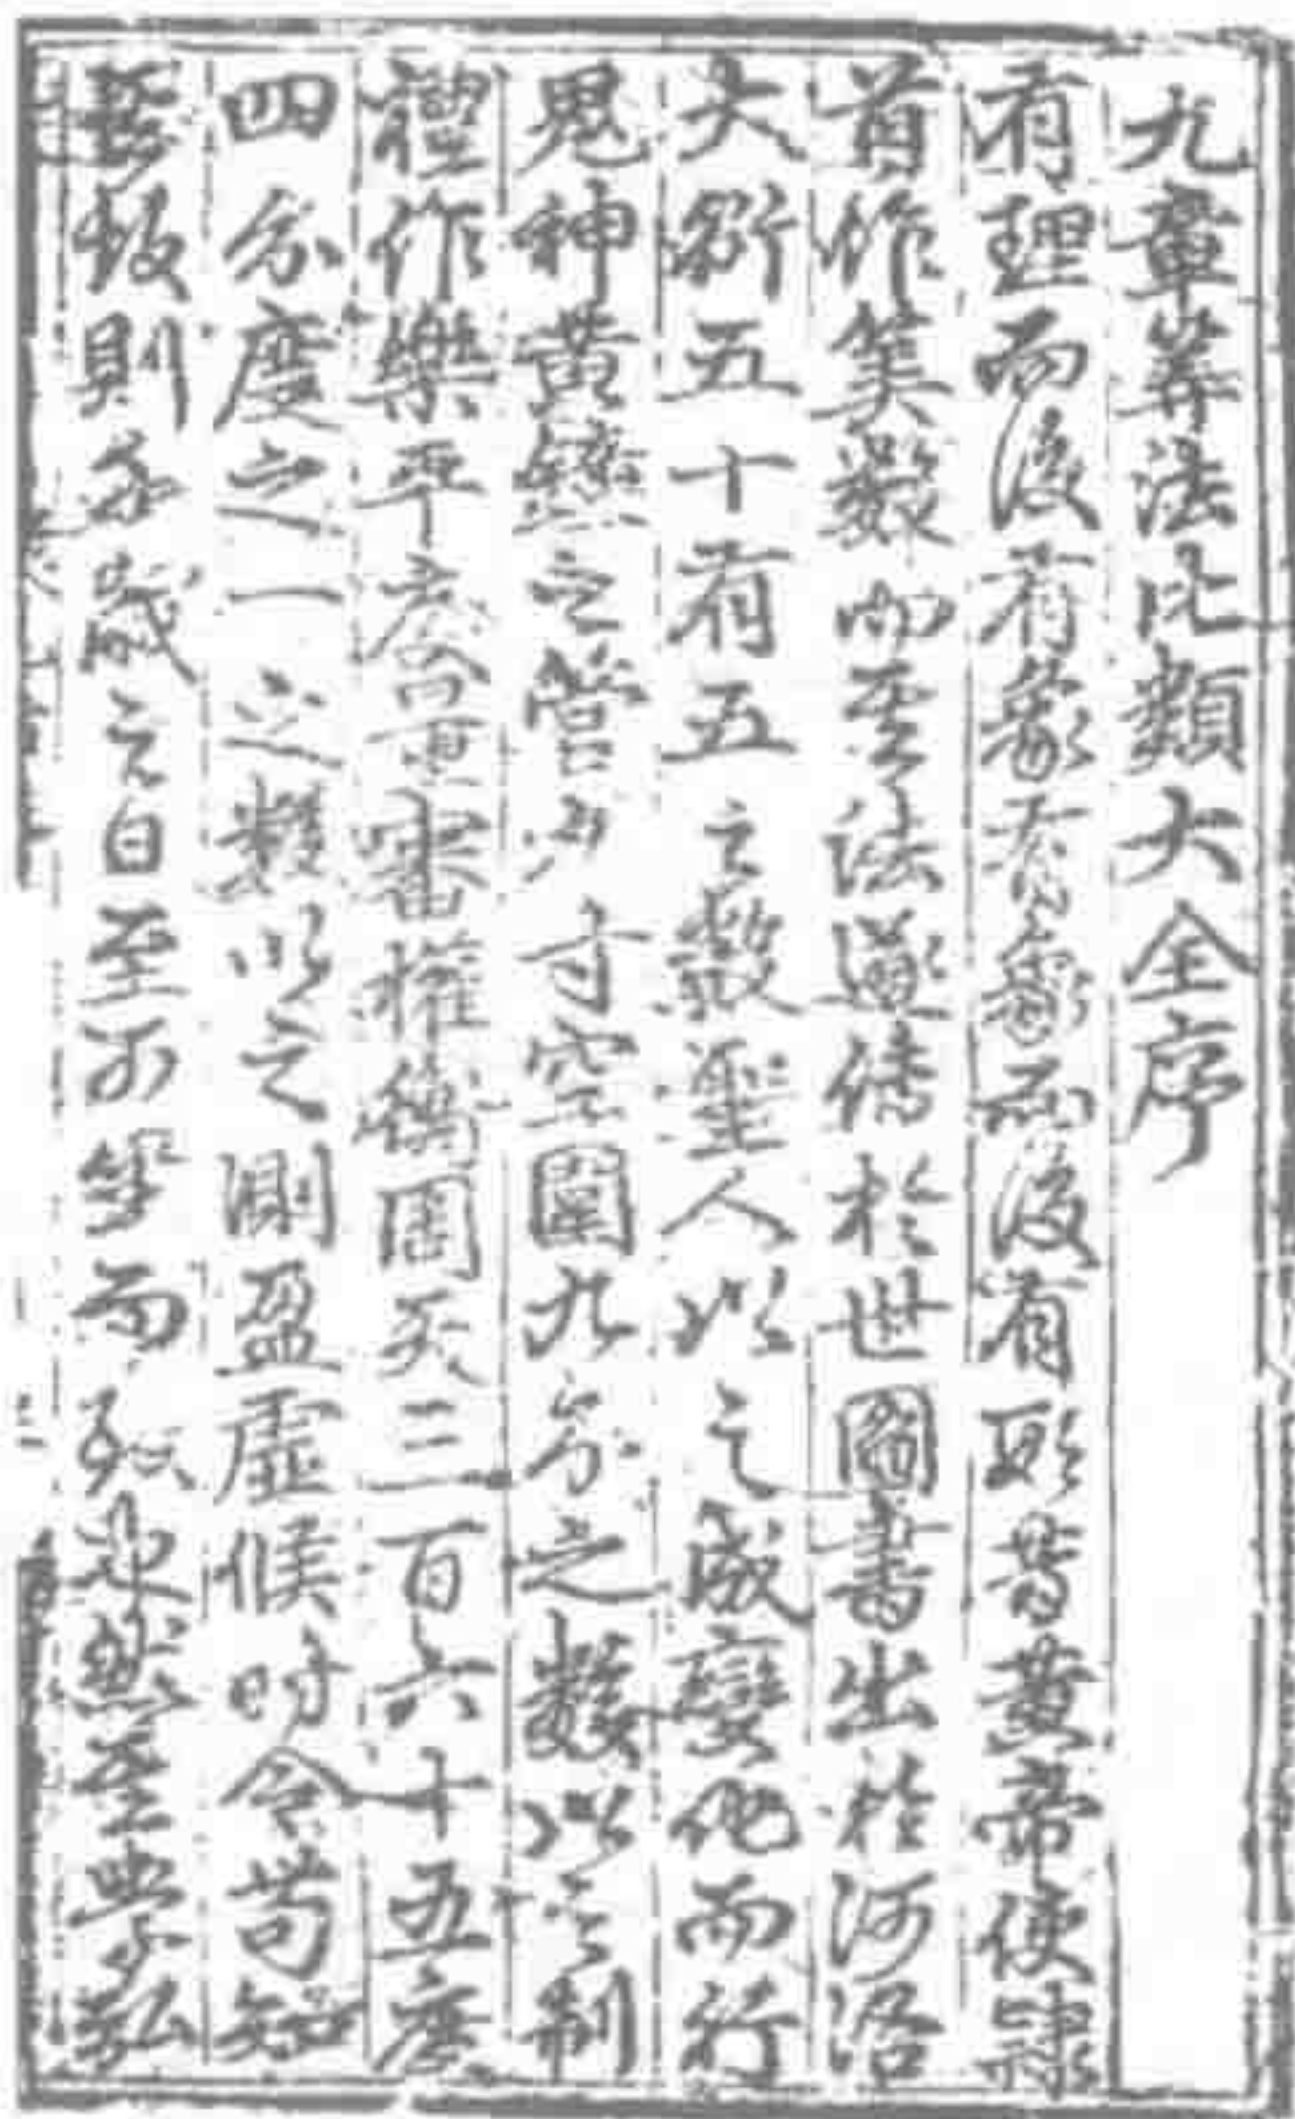 九章筭法比類大全序
有理而後有象有象而後有形昔黃帝使隸
首作筭數而至法遂傳於世圖書出於河洛
大衍五十有五之數聖人以之成變化而行
鬼神黃鍾之管九寸空圍九分之數以之制
禮作樂平度量審權衡周天三百六十五度
四分度之一之數以之測盈虛候時令苟知
其故則千歲之日至可坐而致也然至學弘